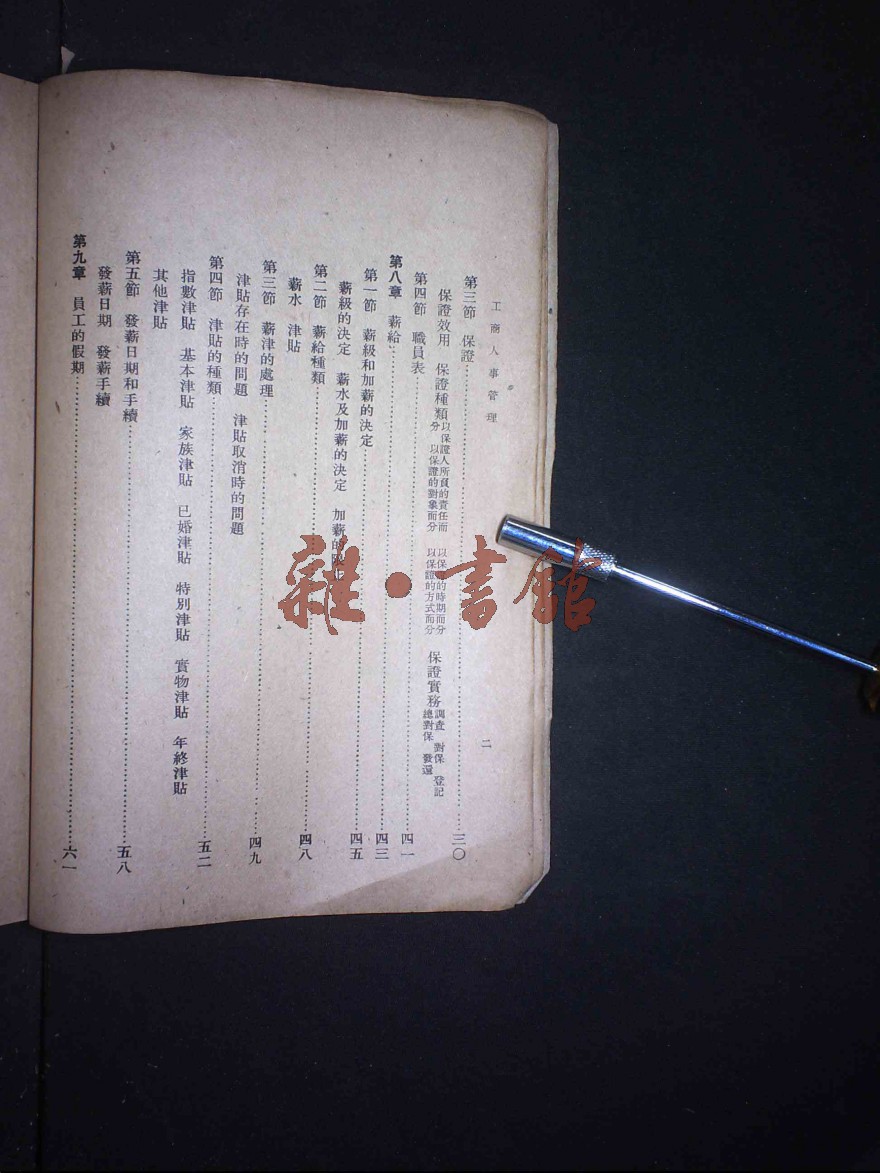 工商人事管理
二
第三節 保證……三〇
保證效用 保證種類 以保證人所負的責任而分 以保證的時期而分 以保證的對象而分 以保證的方式而分 保證實務 調查 對保 登記 總對保 發還
第四節 職員表……四一
第八章 薪給……四三
第一節 薪級和加薪的決定……四五
薪級的決定 薪水及加薪的決定 加薪的
第二節 薪給種類……四八
薪水 津貼
第三節 薪津的處理……四九
津貼存在時的問題 津貼取消時的問題
第四節 津貼的種類……五二
指數津貼 基本津貼 家族津貼 已婚津貼 特別津貼 實物津貼 年終津貼
其他津貼
第五節 發薪日期和手續……五八
發薪日期 發薪手續
第九章 員工的假期……六一
雜·書館